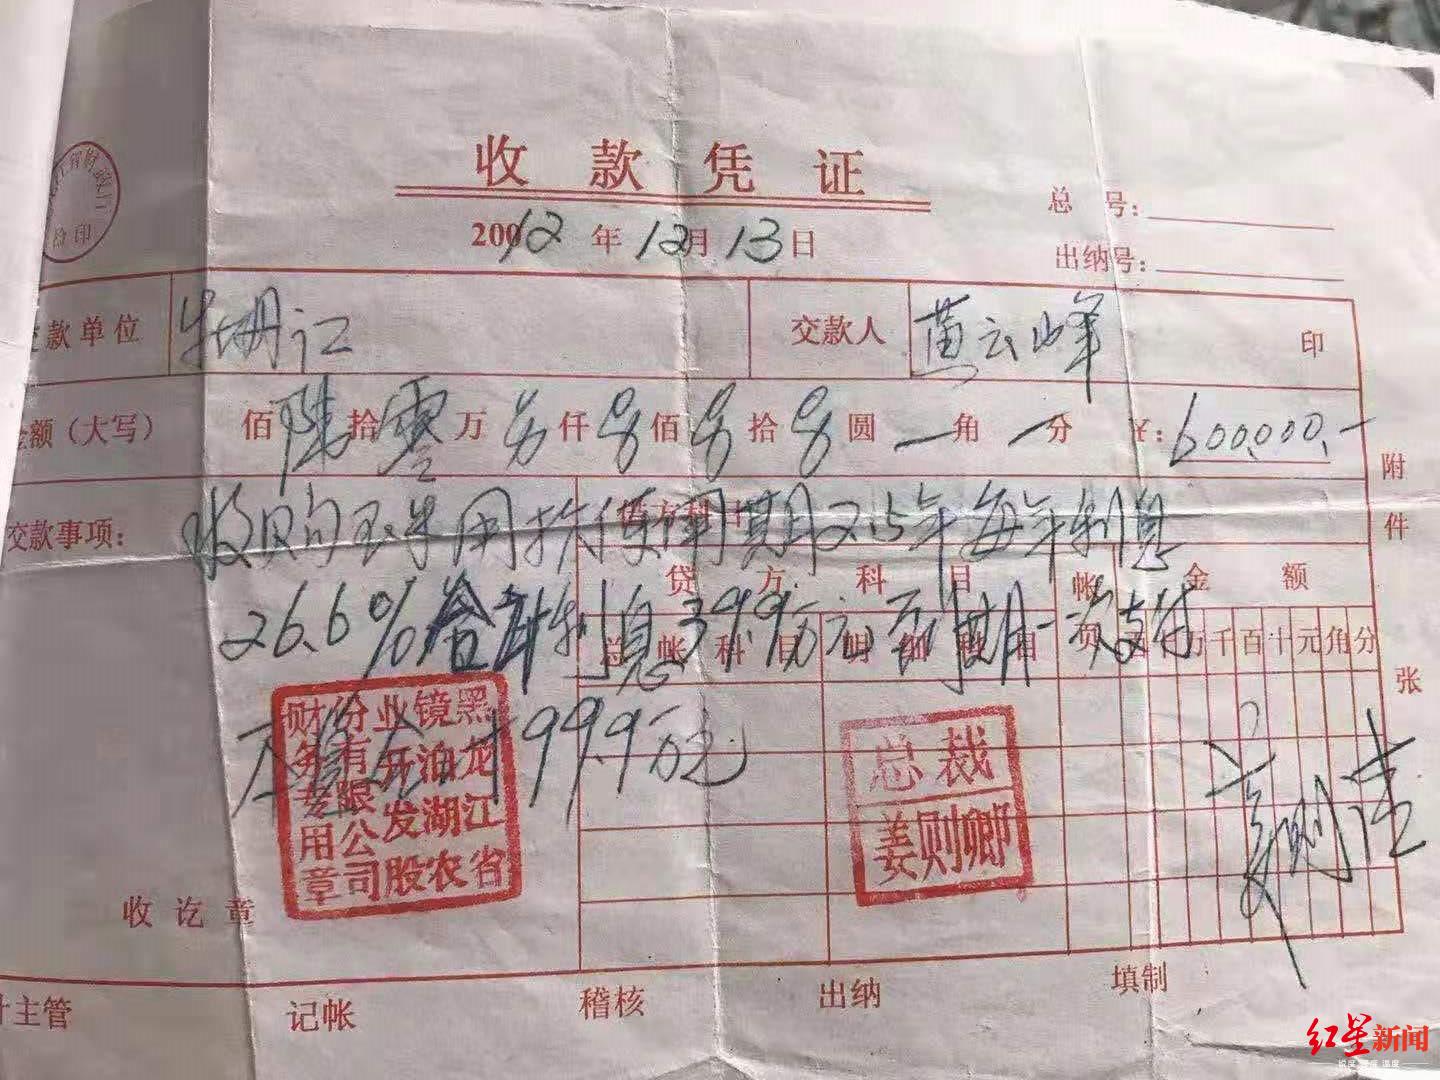 收款凭证
2002 12年12月13日
总 号:
出纳号:
检印
款单位 牡丹江 交款人 黄云峰 印
金额（大写） 佰陆拾零万另仟另佰另拾另圆一角一分 ￥:600,000.-
附件 张
交款事项: 收购玉米用款使用期限15年每年利息
贷方科目 帐页 金额
26.6%合计利息39.9万元到期一次支付
总帐科目 明细科目 万千百十元角分
本息合计99.9万元
黑龙江省镜泊湖农业开发股份有限公司财务专用章
总裁
姜则卿
姜则清
收讫章
计主管 记帐 稽核 出纳 填制
红星新闻